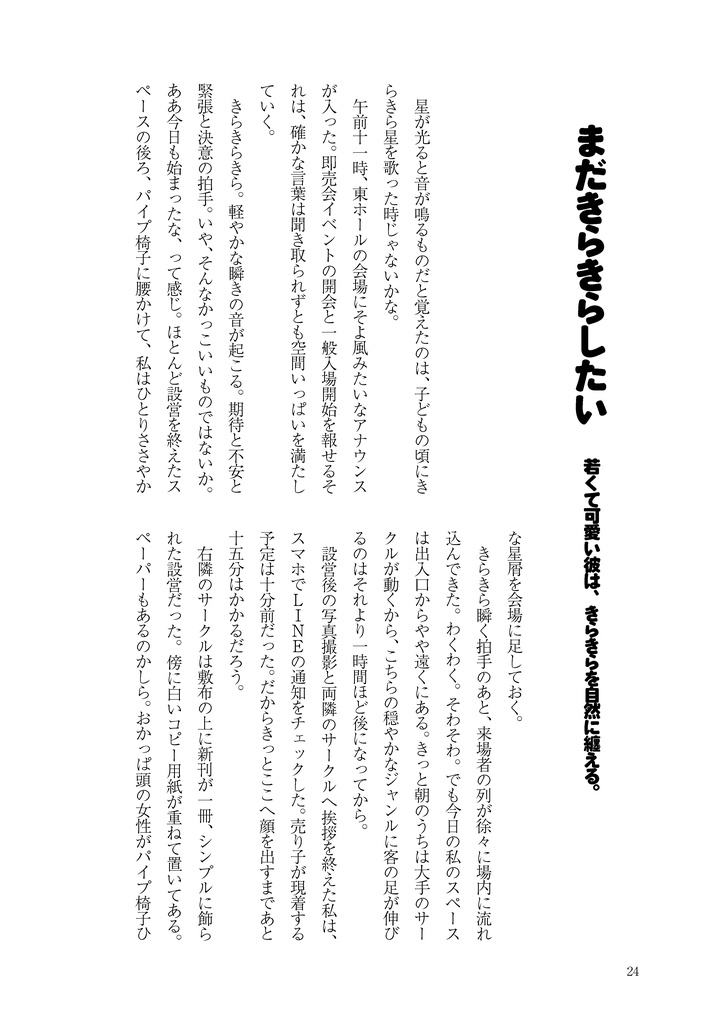 まだきらきらしたい
若くて可愛い彼は、きらきらを自然に纏える。
星が光ると音が鳴るものだと覚えたのは、子どもの頃にき
らきら星を歌った時じゃないかな。
午前十一時、東ホールの会場にそよ風みたいなアナウンス
が入った。即売会イベントの開会と一般入場開始を報せるそ
れは、確かな言葉は聞き取られずとも空間いっぱいを満たし
ていく。
きらきらきら。軽やかな瞬きの音が起こる。期待と不安と
緊張と決意の拍手。いや、そんなかっこいいものではないか。
ああ今日も始まったな、って感じ。ほとんど設営を終えたス
ペースの後ろ、パイプ椅子に腰かけて、私はひとりささやか
な星屑を会場に足しておく。
きらきら瞬く拍手のあと、来場者の列が徐々に場内に流れ
込んできた。わくわく。そわそわ。でも今日の私のスペース
は出入口からやや遠くにある。きっと朝のうちは大手のサー
クルが動くから、こちらの穏やかなジャンルに客の足が伸び
るのはそれより一時間ほど後になってから。
設営後の写真撮影と両隣のサークルへ挨拶を終えた私は、
スマホでLINEの通知をチェックした。売り子が現着する
予定は十分前だった。だからきっとここへ顔を出すまであと
十五分はかかるだろう。
右隣のサークルは敷布の上に新刊が一冊、シンプルに飾ら
れた設営だった。傍に白いコピー用紙が重ねて置いてある。
ペーパーもあるのかしら。おかっぱ頭の女性がパイプ椅子ひ
24